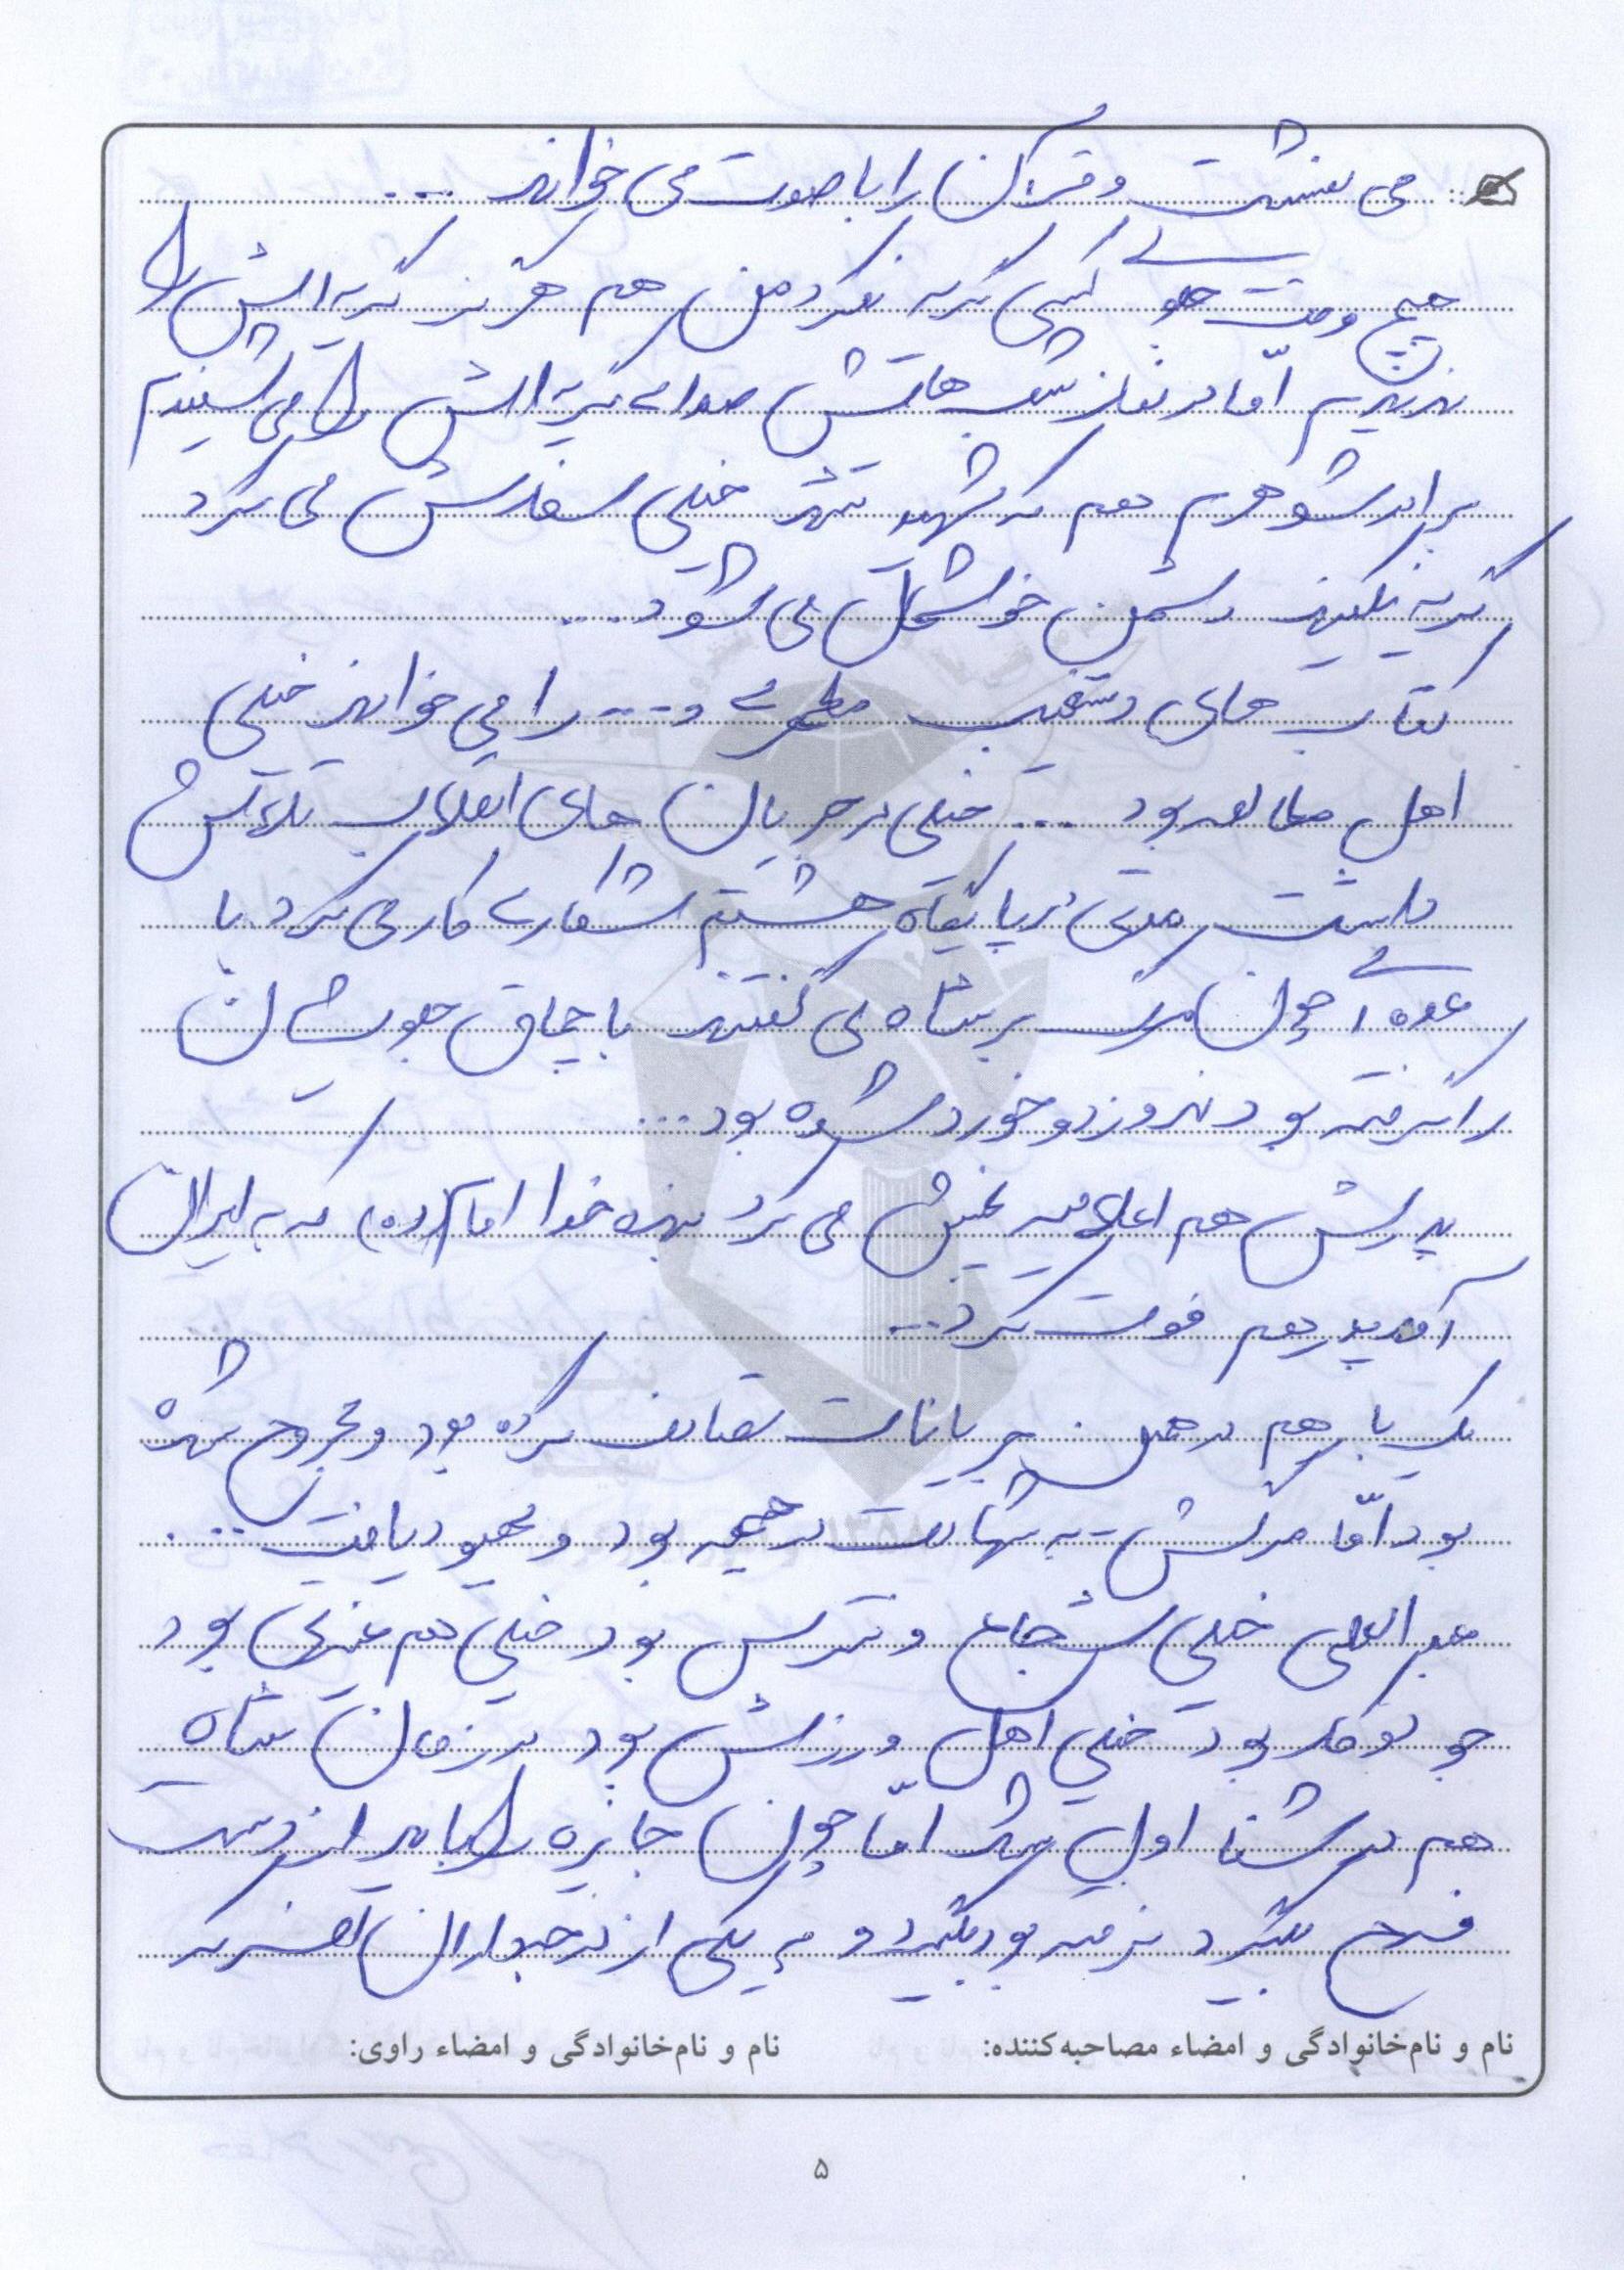 می نشست و قرآن را با صوت می خواند ...
هیچ وقت جلو کسی گریه نکرد من هم هرگز گریه اش را
ندیدم اما در نماز شب هایش صدای گریه اش را می شنیدم
برادر شوهرم هم که شهید شد خیلی سفارش می کرد
گریه نکنید دشمن خوشحال می شود ....
کتاب های دستغیب مطهری و ... را می خواند خیلی
اهل مطالعه بود ... خیلی در جریان های انقلاب تلاش
داشت مدتی در پایگاه هشتم شکاری کار می کرد با
عده ای چون مرگ بر شاه می گفتند با چماق جلویشان
را گرفته بودند و زد و خورد شده بود ...
پدرش هم اعلامیه پخش می کرد بنده خدا امام (ره) که به ایران
آمد پدرم هم فوت کرد ...
یک بار هم در همین جریانات تصادف کرده بود و مجروح شده
بود اما مرگش به شهادت بود و بهبود یافت ....
عبدالعلی خیلی شجاع و نترس بود خیلی هم بود
بود خیلی اهل ورزش بود در زمان شاه
هم در شنا اول شد اما چون جایزه را باید از دست
فرح بگیرد نرفته بود بگیرد و به یکی از درجه داران
نام و نام‌خانوادگی و امضاء مصاحبه‌کننده: نام و نام‌خانوادگی و امضاء راوی:
۵